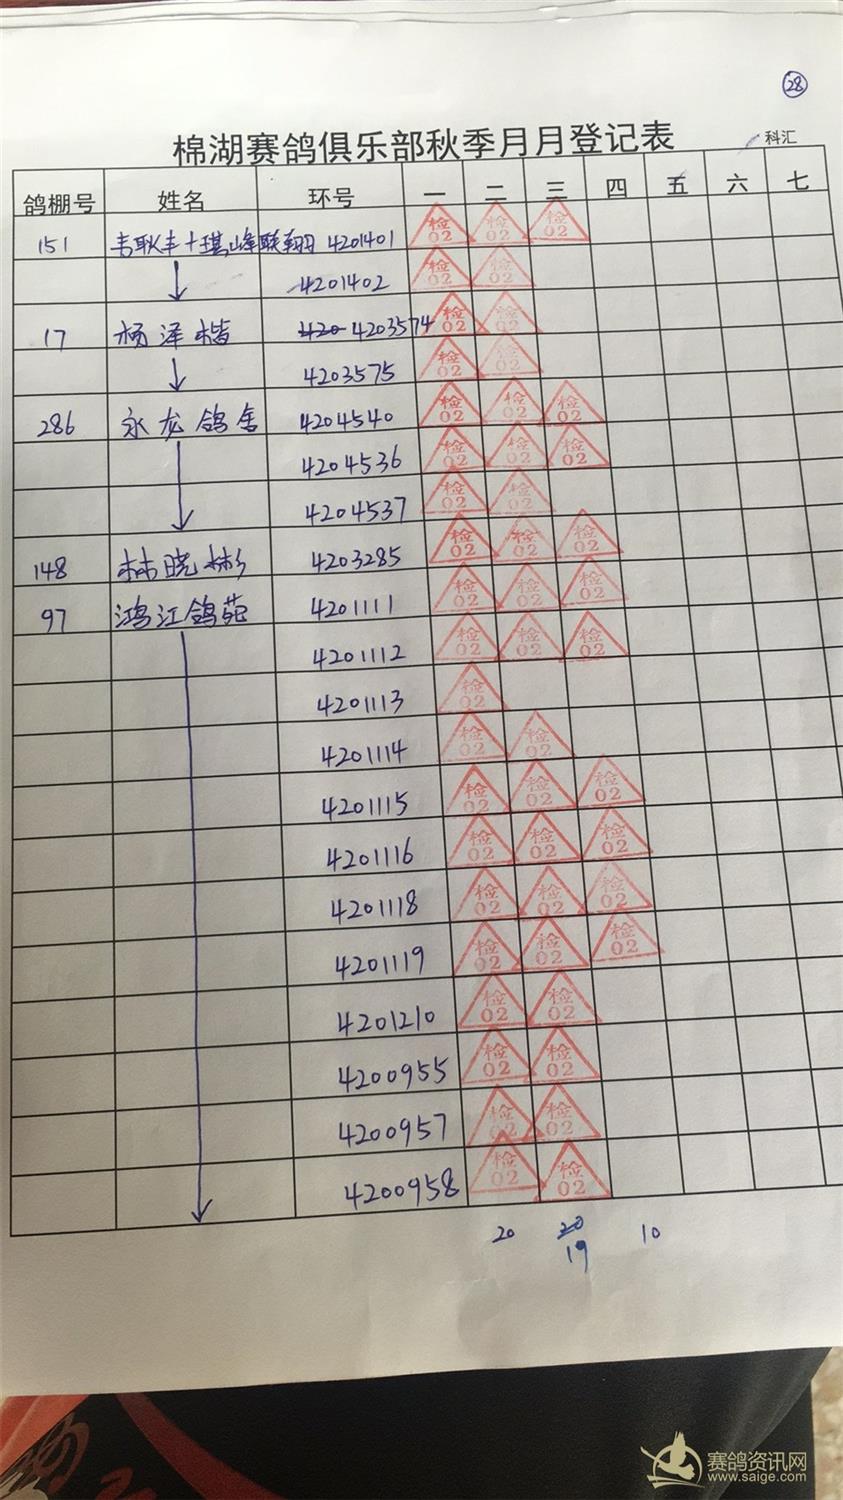 28
棉湖赛鸽俱乐部秋季月月登记表 科汇
鸽棚号 姓名 环号 一 二 三 四 五 六 七
151 韦耿丰十琪峰联翔 4201401 检02 检02 检02
4201402 检02 检02
17 杨泽楷 420 4203574 检02 检02
4203575 检02 检02
286 永龙鸽舍 4204540 检02 检02 检02
4204536 检02 检02 检02
4204537 检02 检02
148 林晓彬 4203285 检02 检02 检02
97 鸿江鸽苑 4201111 检02 检02 检02
4201112 检02 检02 检02
4201113 检02
4201114 检02 检02
4201115 检02 检02 检02
4201116 检02 检02 检02
4201118 检02 检02 检02
4201119 检02 检02 检02
4201210 检02 检02
4200955 检02 检02
4200957 检02 检02
4200958 检02 检02
20 20 10
19
赛鸽资讯网
www.saige.com